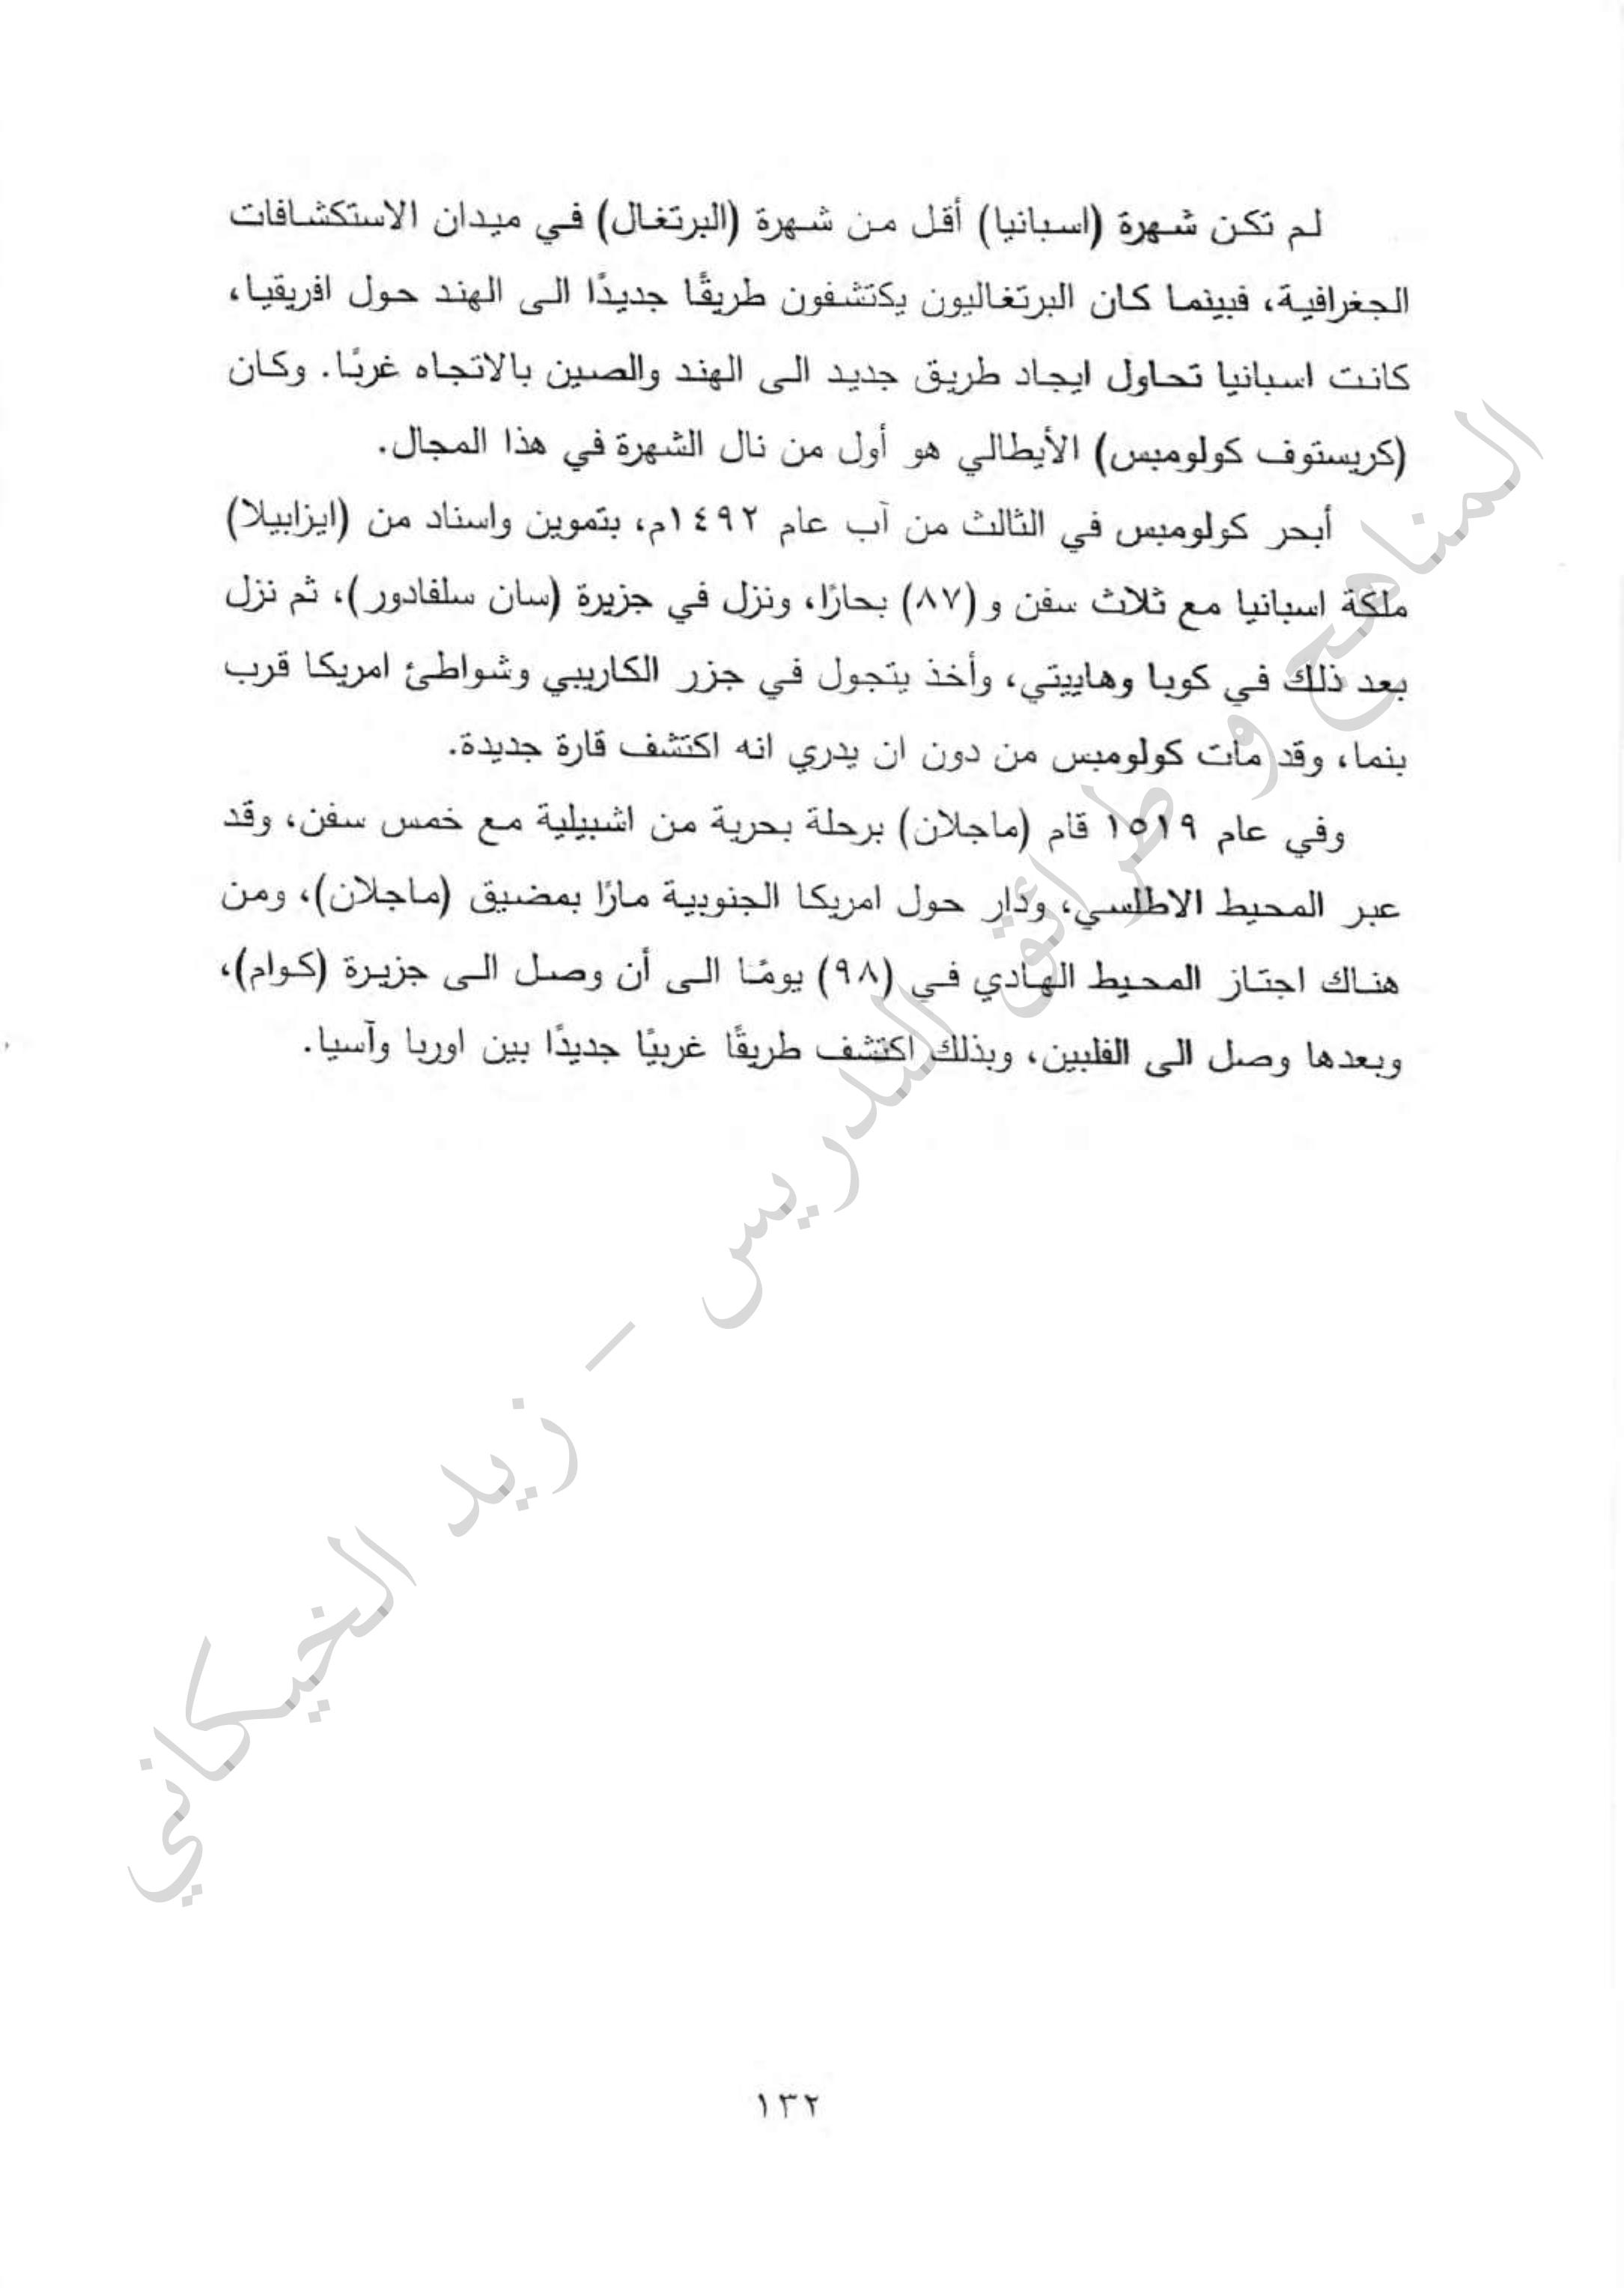 لم تكن شهرة (اسبانيا) أقل من شهرة (البرتغال) في ميدان الاستكشافات
الجغرافية، فبينما كان البرتغاليون يكتشفون طريقًا جديدًا الى الهند حول افريقيا،
كانت اسبانيا تحاول ايجاد طريق جديد الى الهند والصين بالاتجاه غربًا. وكان
(كريستوف كولومبس) الأيطالي هو أول من نال الشهرة في هذا المجال.
أبحر كولومبس في الثالث من آب عام ١٤٩٢م، بتموين واسناد من (ايزابيلا)
ملكة اسبانيا مع ثلاث سفن و (٨٧) بحارًا، ونزل في جزيرة (سان سلفادور)، ثم نزل
بعد ذلك في كوبا وهاييتي، وأخذ يتجول في جزر الكاريبي وشواطئ امريكا قرب
بنما، وقد مات كولومبس من دون ان يدري انه اكتشف قارة جديدة.
وفي عام ١٥١٩ قام (ماجلان) برحلة بحرية من اشبيلية مع خمس سفن، وقد
عبر المحيط الاطلسي، ودار حول امريكا الجنوبية مارًا بمضيق (ماجلان)، ومن
هناك اجتاز المحيط الهادي في (٩٨) يومًا الى أن وصل الى جزيرة (كوام)،
وبعدها وصل الى الفلبين، وبذلك اكتشف طريقًا غربيًا جديدًا بين اوربا وآسيا.
المناهج و طرائق التدريس – زيد الخيكاني
١٣٢